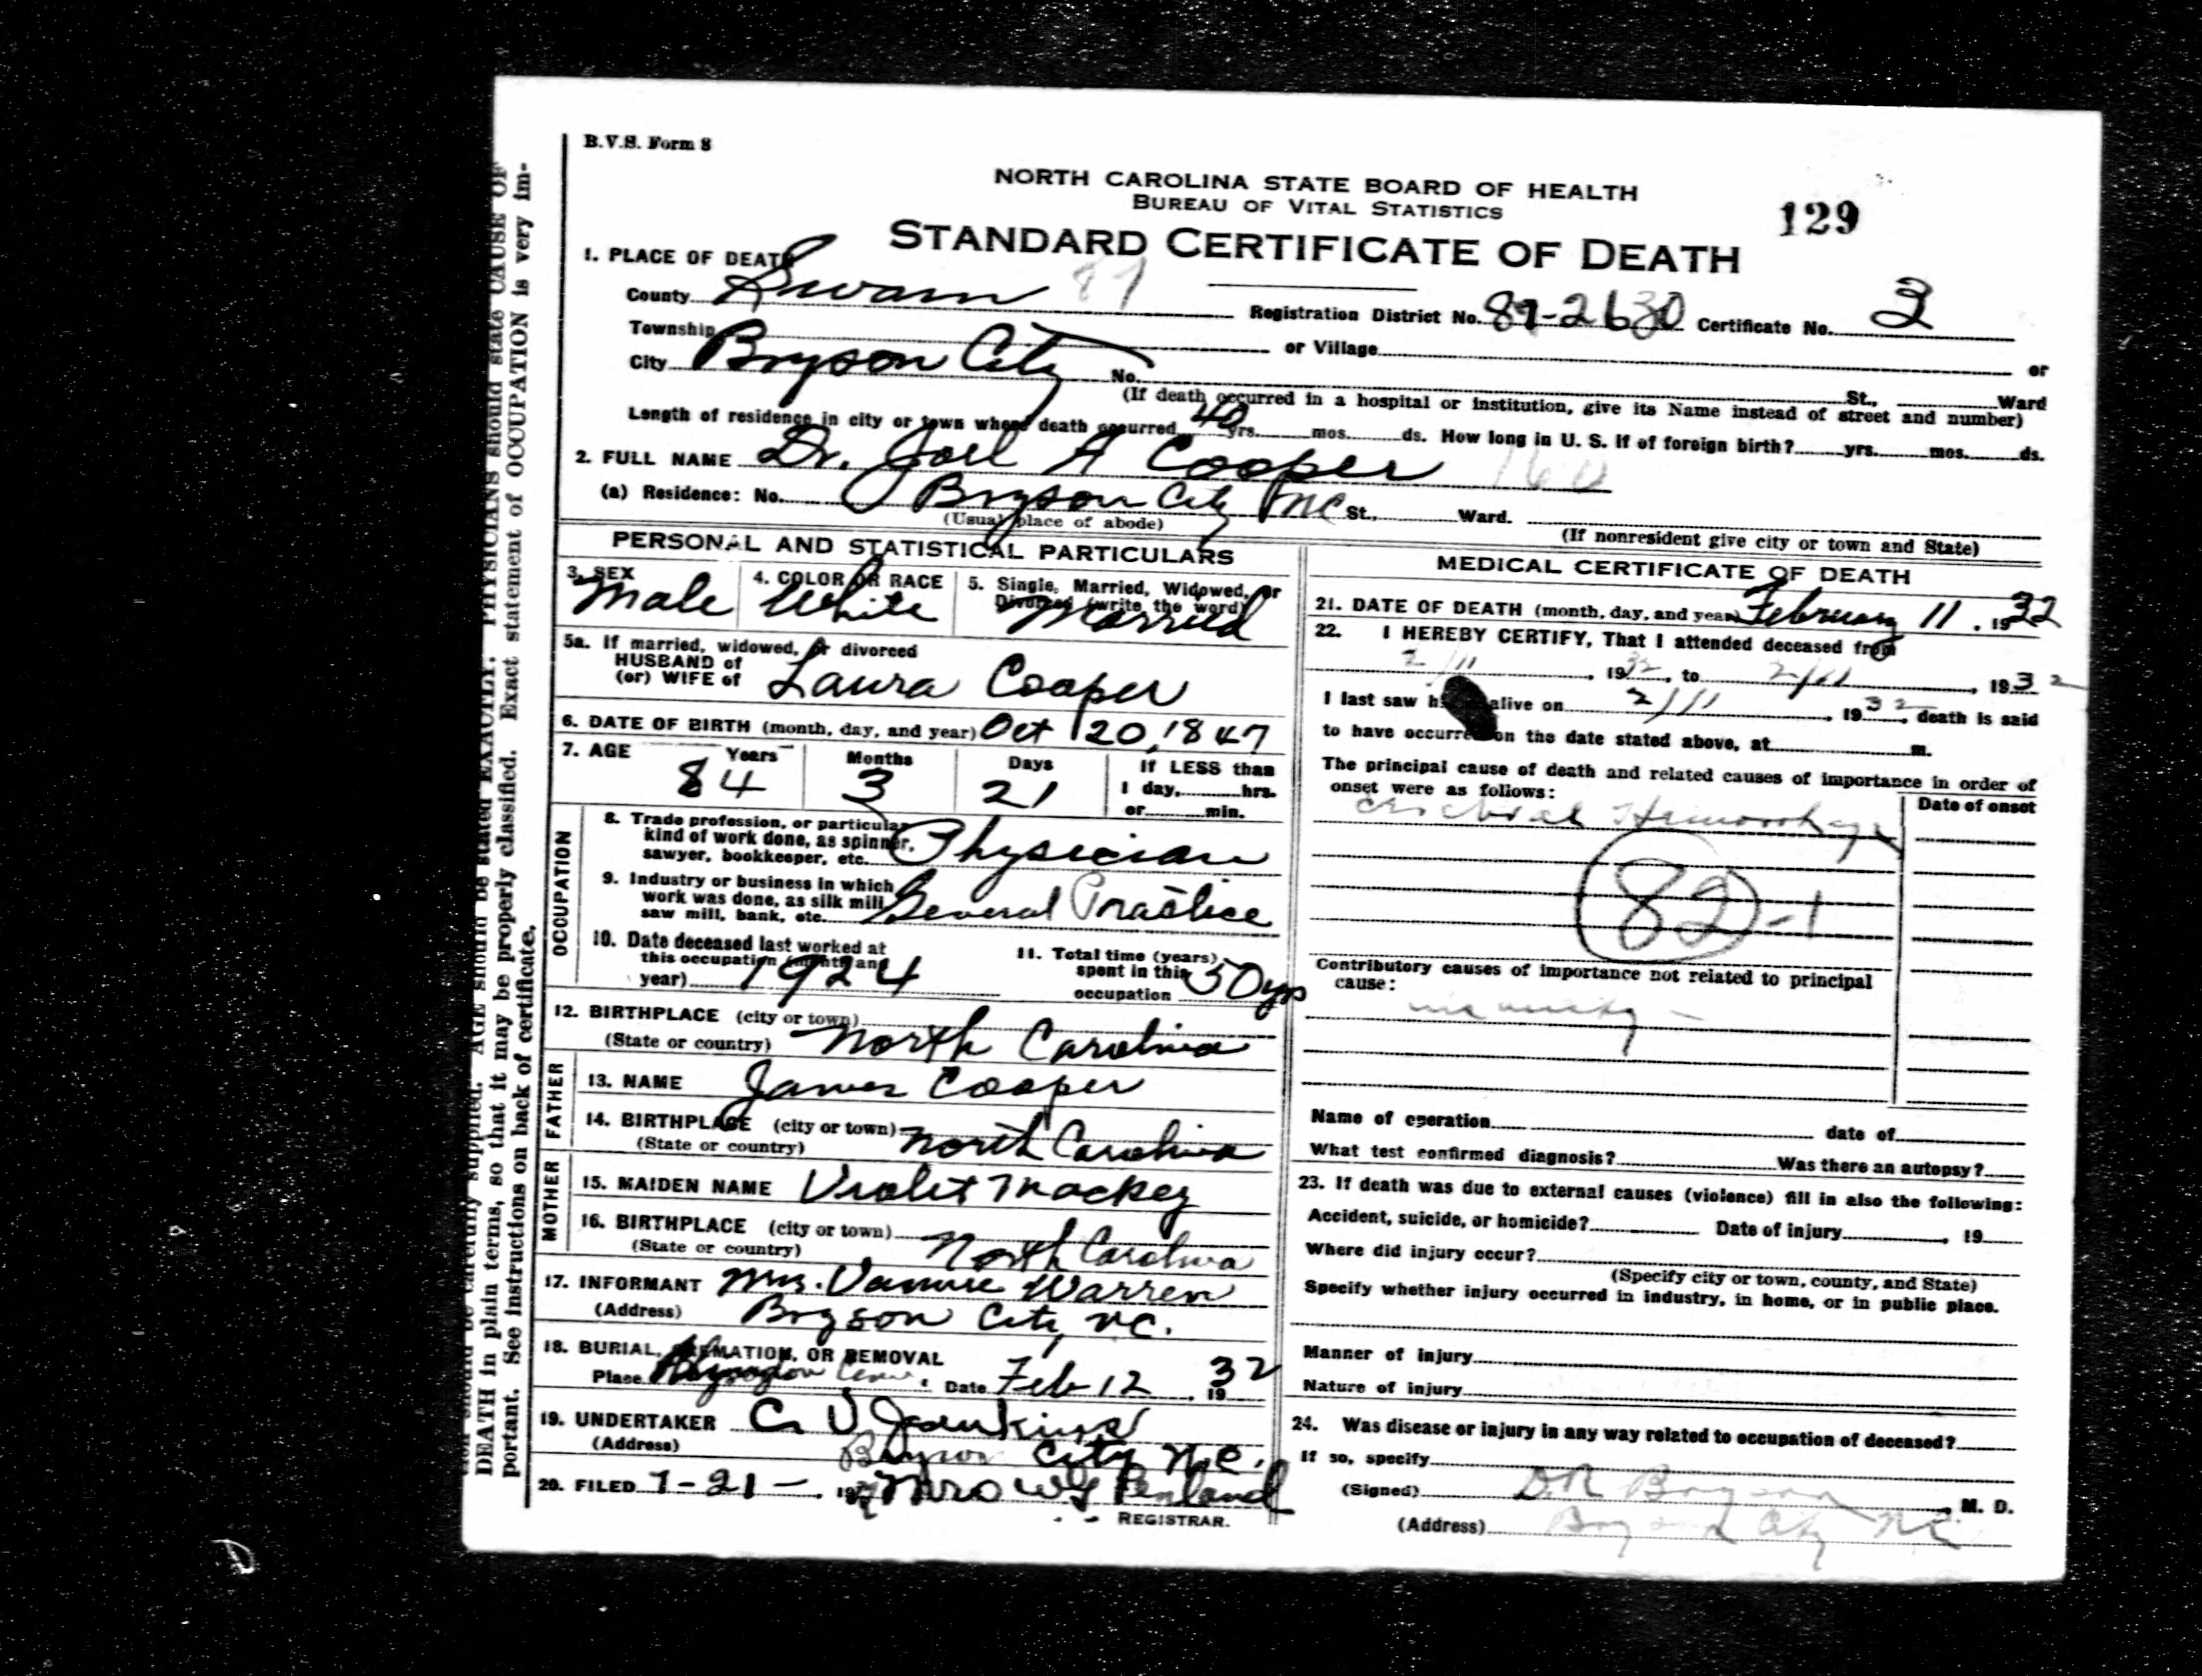 B.V.S. Form 8
NORTH CAROLINA STATE BOARD OF HEALTH
BUREAU OF VITAL STATISTICS
129
STANDARD CERTIFICATE OF DEATH
1. PLACE OF DEATH
County Swain 87 Registration District No. 87-2630 Certificate No. 3
Township or Village or
City Bryson City No. St., Ward
(If death occurred in a hospital or institution, give its Name instead of street and number)
Length of residence in city or town where death occurred 40 yrs. mos. ds. How long in U. S. if of foreign birth? yrs. mos. ds.
2. FULL NAME Dr. Joel A Cooper 160
(a) Residence: No. Bryson City NC St., Ward.
(Usual place of abode) (If nonresident give city or town and State)
PERSONAL AND STATISTICAL PARTICULARS
3. SEX Male
4. COLOR OR RACE White
5. Single, Married, Widowed, or Divorced (write the word) Married
5a. If married, widowed, or divorced
HUSBAND of
(or) WIFE of Laura Cooper
6. DATE OF BIRTH (month, day, and year) Oct 20, 1847
7. AGE Years Months Days If LESS than
84 3 21 1 day, hrs.
or min.
OCCUPATION
8. Trade profession, or particular
kind of work done, as spinner,
sawyer, bookkeeper, etc. Physician
9. Industry or business in which
work was done, as silk mill
saw mill, bank, etc. General Practice
10. Date deceased last worked at
this occupation (month and
year) 1924
11. Total time (years)
spent in this
occupation 50 yrs
12. BIRTHPLACE (city or town)
(State or country) North Carolina
FATHER
13. NAME James Cooper
14. BIRTHPLACE (city or town)
(State or country) North Carolina
MOTHER
15. MAIDEN NAME Violet Mackey
16. BIRTHPLACE (city or town)
(State or country) North Carolina
17. INFORMANT Mrs. Vannie Warren
(Address) Bryson City, NC.
18. BURIAL, CREMATION, OR REMOVAL
Place Date Feb 12, 1932
19. UNDERTAKER C V Jenkins
(Address) Bryson City N.C.
20. FILED 7-21- Mrs W G Penland
REGISTRAR.
MEDICAL CERTIFICATE OF DEATH
21. DATE OF DEATH (month, day, and year) February 11, 1932
22. I HEREBY CERTIFY, That I attended deceased from
2/11, 1932, to 2/11, 1932
I last saw h alive on 2/11, 1932, death is said
to have occurred on the date stated above, at m.
The principal cause of death and related causes of importance in order of
onset were as follows: Date of onset
Cerebral Hemorrhage
82-1
Contributory causes of importance not related to principal
cause:
Name of operation date of
What test confirmed diagnosis? Was there an autopsy?
23. If death was due to external causes (violence) fill in also the following:
Accident, suicide, or homicide? Date of injury, 19
Where did injury occur?
(Specify city or town, county, and State)
Specify whether injury occurred in industry, in home, or in public place.
Manner of injury
Nature of injury
24. Was disease or injury in any way related to occupation of deceased?
If so, specify
(Signed) D.R. Bryson, M. D.
(Address) Bryson City NC
should be carefully supplied. AGE should be stated EXACTLY. PHYSICIANS should state CAUSE OF
DEATH in plain terms, so that it may be properly classified. Exact statement of OCCUPATION is very im-
portant. See instructions on back of certificate.